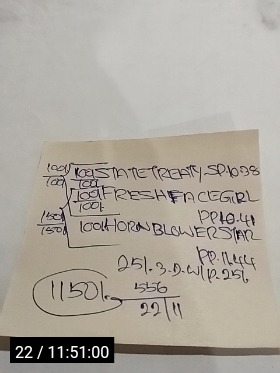 100/ 100/ STATE TREATY-SP10.38
100/ 100/
100/ FRESH FACE GIRL
100/
150/ PP10.41
150/ 100/ HORNBLOWER STAR
PP.11.44
25/. 3.D.W/P.25/.
1150/. 556
22/11
22 / 11:51:00